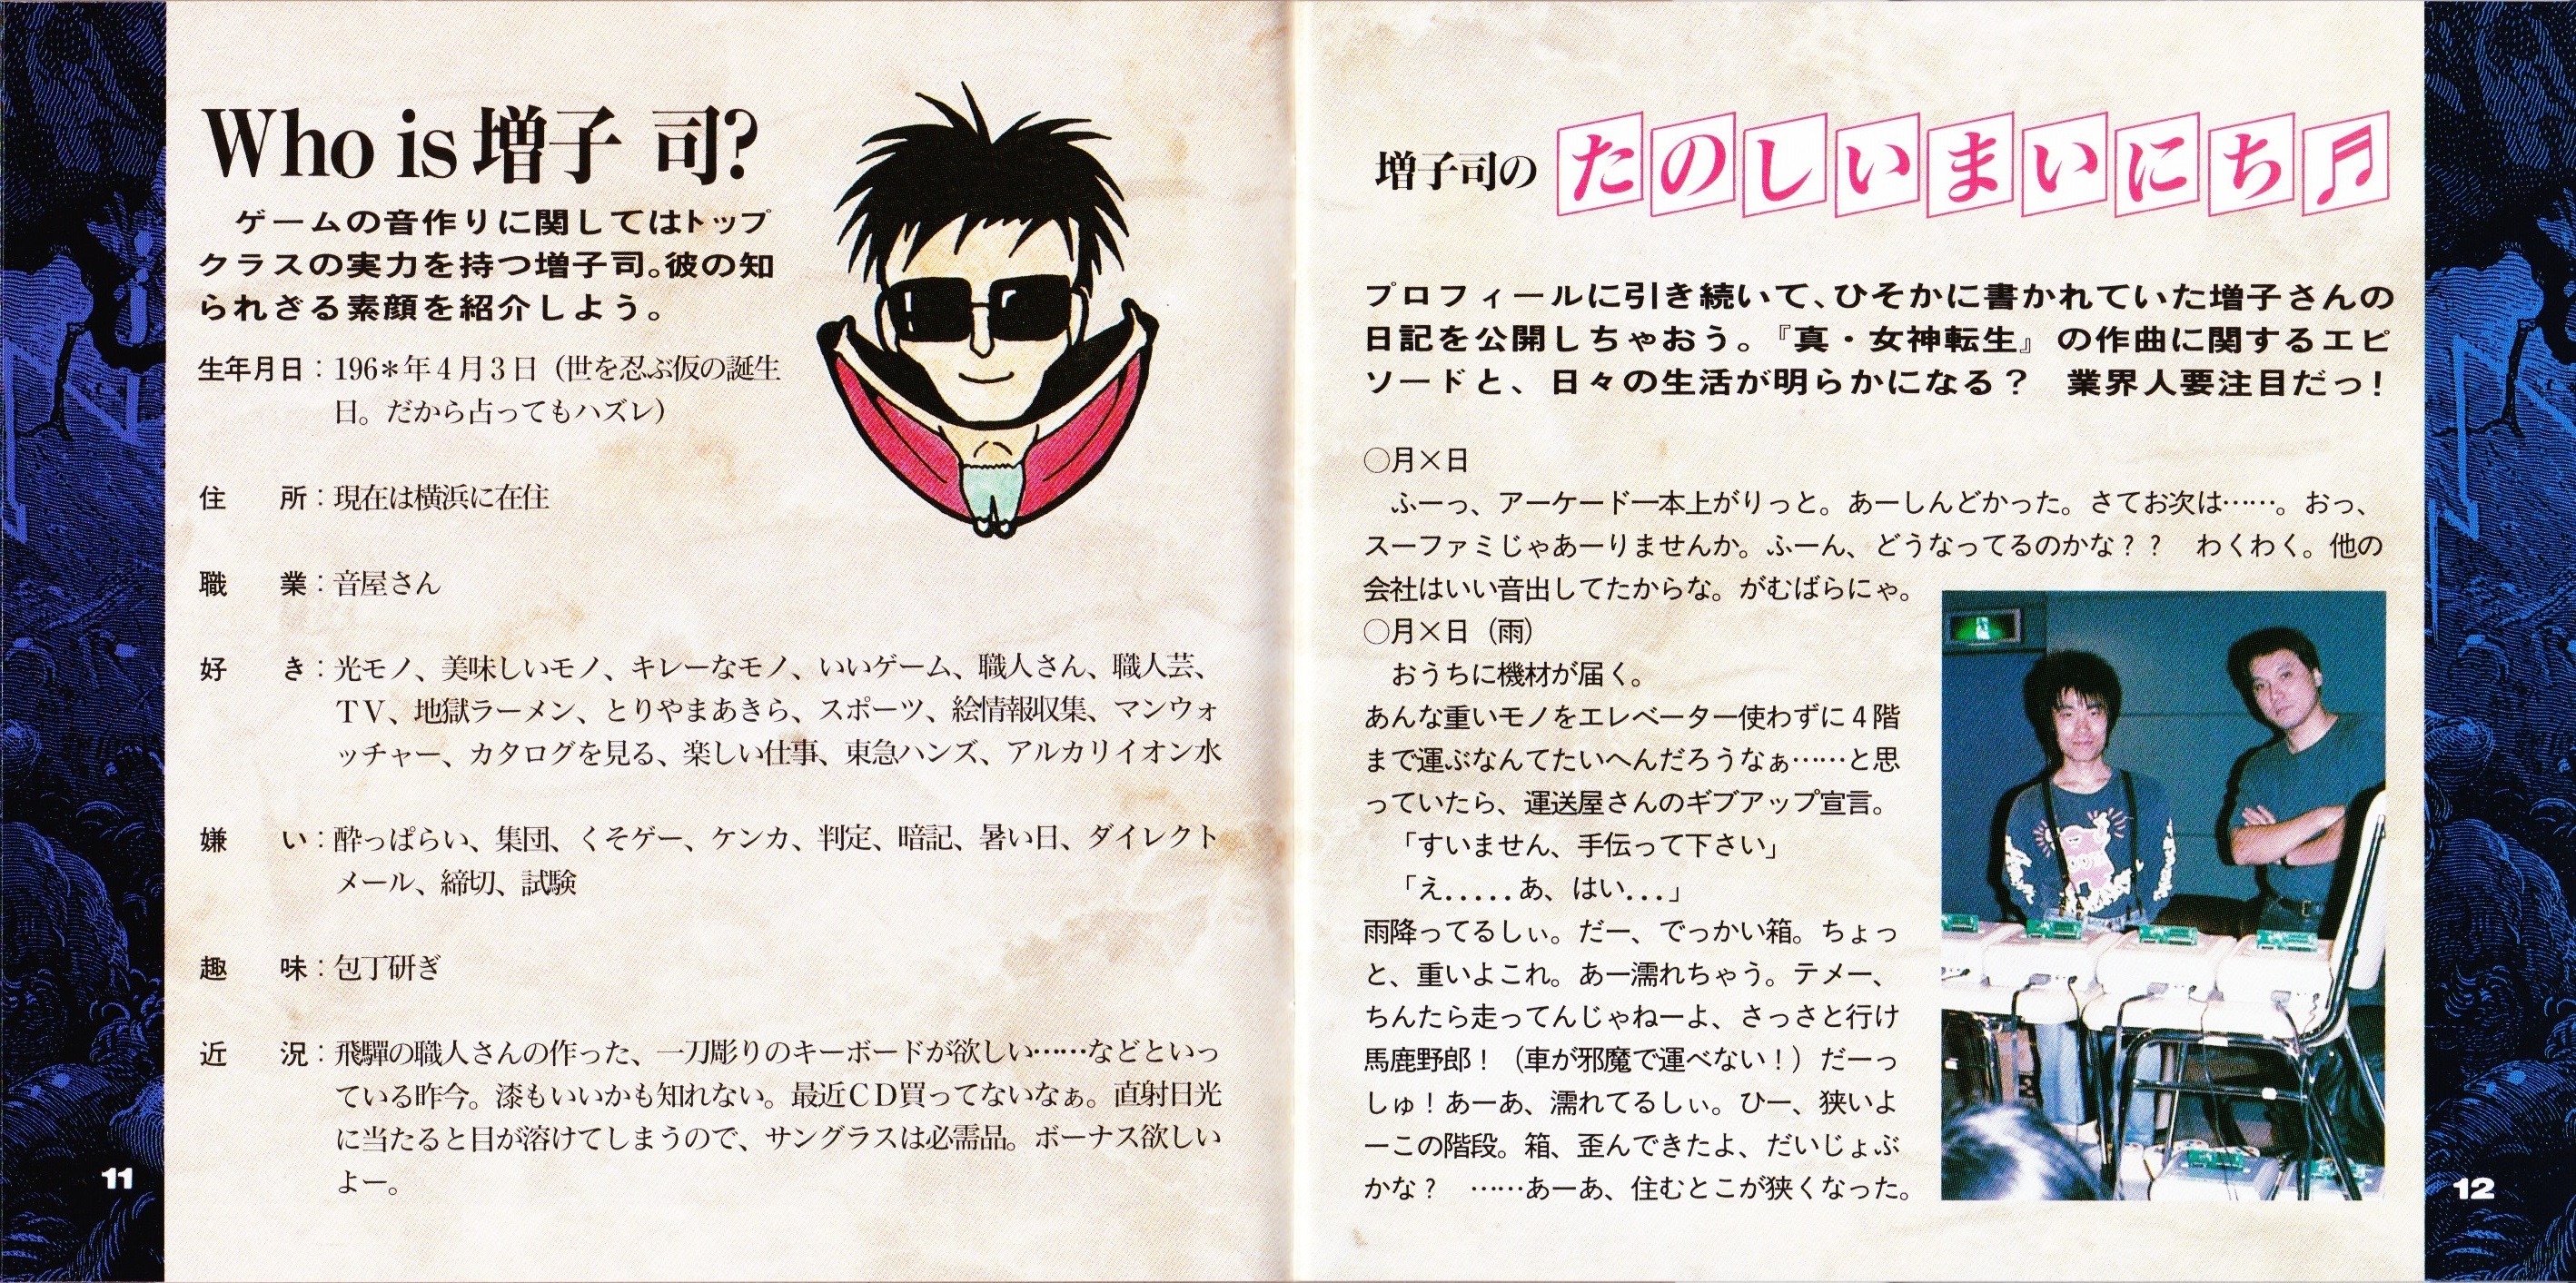 Who is 増子 司?
ゲームの音作りに関してはトップ
クラスの実力を持つ増子司。彼の知
られざる素顔を紹介しよう。
生年月日：196*年4月3日（世を忍ぶ仮の誕生
日。だから占ってもハズレ）
住　所：現在は横浜に在住
職　業：音屋さん
好　き：光モノ、美味しいモノ、キレーなモノ、いいゲーム、職人さん、職人芸、
ＴＶ、地獄ラーメン、とりやまあきら、スポーツ、絵情報収集、マンウォ
ッチャー、カタログを見る、楽しい仕事、東急ハンズ、アルカリイオン水
嫌　い：酔っぱらい、集団、くそゲー、ケンカ、判定、暗記、暑い日、ダイレクト
メール、締切、試験
趣　味：包丁研ぎ
近　況：飛驒の職人さんの作った、一刀彫りのキーボードが欲しい……などといっ
ている昨今。漆もいいかも知れない。最近ＣＤ買ってないなぁ。直射日光
に当たると目が溶けてしまうので、サングラスは必需品。ボーナス欲しい
よー。
11
増子司の たのしいまいにち♬
プロフィールに引き続いて、ひそかに書かれていた増子さんの
日記を公開しちゃおう。『真・女神転生』の作曲に関するエピ
ソードと、日々の生活が明らかになる？　業界人要注目だっ！
○月×日
ふーっ、アーケード一本上がりっと。あーしんどかった。さてお次は……。おっ、
スーファミじゃあーりませんか。ふーん、どうなってるのかな？？　わくわく。他の
会社はいい音出してたからな。がむばらにゃ。
○月×日（雨）
おうちに機材が届く。
あんな重いモノをエレベーター使わずに４階
まで運ぶなんてたいへんだろうなぁ……と思
っていたら、運送屋さんのギブアップ宣言。
「すいません、手伝って下さい」
「え.....あ、はい...」
雨降ってるしぃ。だー、でっかい箱。ちょっ
と、重いよこれ。あー濡れちゃう。テメー、
ちんたら走ってんじゃねーよ、さっさと行け
馬鹿野郎！（車が邪魔で運べない！）だーっ
しゅ！あーあ、濡れてるしぃ。ひー、狭いよ
ーこの階段。箱、歪んできたよ、だいじょぶ
かな？　……あーあ、住むとこが狭くなった。
12